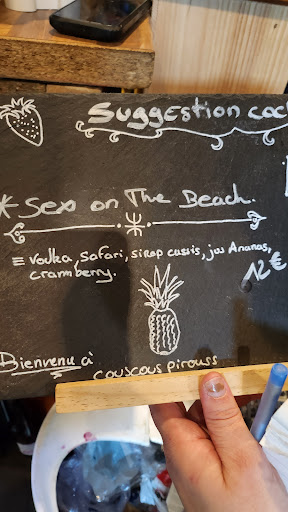 Suggestion coc
* Sex on The Beach.
= Vodka, Safari, sirop cassis, jus Ananas,
crammberry.
12€
Bienvenu à
couscous pirouss